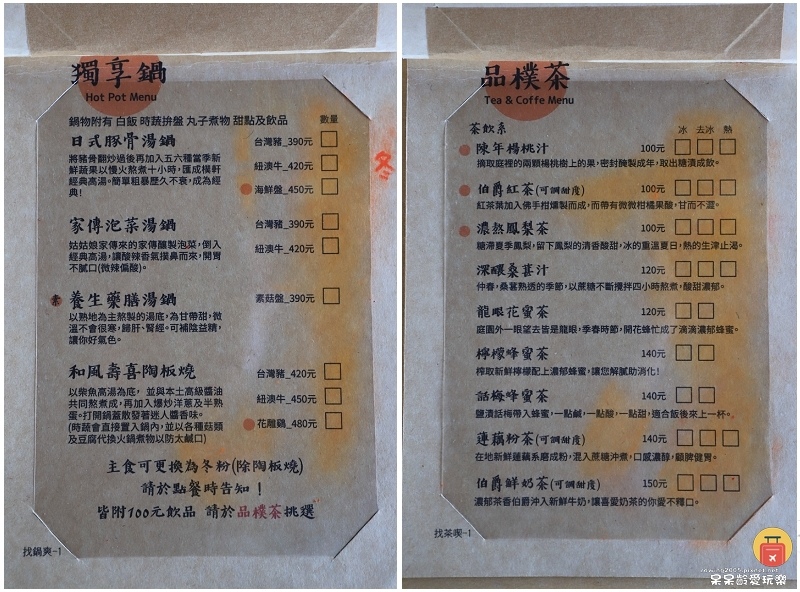 獨享鍋
Hot Pot Menu
鍋物附有 白飯 時蔬拚盤 丸子煮物 甜點及飲品
數量
日式豚骨湯鍋
台灣豬_390元
將豬骨翻炒過後再加入五六種當季新
鮮蔬果以慢火熬煮十小時，匯成樸軒
經典高湯。簡單粗暴歷久不衰，成為經
典！
紐澳牛_420元
海鮮盤_450元
冬
家傳泡菜湯鍋
台灣豬_390元
姑姑娘家傳來的家傳醃製泡菜，倒入
經典高湯，讓酸辣香氣撲鼻而來，開胃
不膩口(微辣偏酸)。
紐澳牛_420元
素
養生藥膳湯鍋
素菇盤_390元
以熟地為主熬製的湯底，為甘帶甜，微
溫不會很寒，歸肝、腎經。可補陰益精，
讓你好氣色。
和風壽喜陶板燒
台灣豬_420元
以柴魚高湯為底， 並與本土高級醬油
共同熬煮成，再加入爆炒洋蔥及半熟
蛋。打開鍋蓋散發著迷人醬香味。
(時蔬會直接置入鍋內，並以各種菇類
及豆腐代換火鍋煮物以防太鹹口)
紐澳牛_450元
花雕雞_480元
主食可更換為冬粉(除陶板燒)
請於點餐時告知！
皆附100元飲品 請於品樸茶挑選
找鍋爽-1
品樸茶
Tea & Coffe Menu
茶飲系
冰 去冰 熱
陳年楊桃汁 100元
摘取庭裡的兩顆楊桃樹上的果，密封醃製成年，取出糖漬成飲。
伯爵紅茶(可調甜度) 100元
紅茶葉加入佛手柑燻製而成，而帶有微微柑橘果酸，甘而不澀。
濃熬鳳梨茶 100元
糖滯夏季鳳梨，留下鳳梨的清香酸甜，冰的重溫夏日，熱的生津止渴。
深醞桑葚汁 120元
仲春，桑葚熟透的季節，以蔗糖不斷攪拌四小時熬煮，酸甜濃郁。
龍眼花蜜茶 120元
庭園外一眼望去皆是龍眼，季春時節，開花蜂忙成了滴滴濃郁蜂蜜。
檸檬蜂蜜茶 140元
榨取新鮮檸檬配上濃郁蜂蜜，讓您解膩助消化！
話梅蜂蜜茶 140元
鹽漬話梅帶入蜂蜜，一點鹹，一點酸，一點甜，適合飯後來上一杯。
蓮藕粉茶(可調甜度) 140元
在地新鮮蓮藕系磨成粉，混入蔗糖沖煮，口感濃醇，顧脾健胃。
伯爵鮮奶茶(可調甜度) 150元
濃郁茶香伯爵沖入新鮮牛奶，讓喜愛奶茶的你愛不釋口。
找茶喫-1
呆呆齡愛玩樂